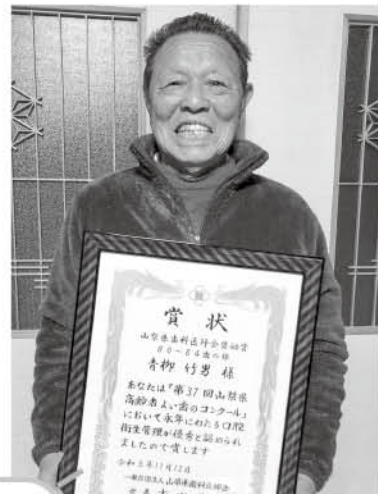 賞状
山梨県歯科医師会奨励賞
80〜84歳の部
青柳 竹男 様
あなたは「第37回山梨県
高齢者よい歯のコンクール」
において永年にわたる口腔
衛生管理が優秀と認められ
ましたので賞します
令和5年11月12日
一般社団法人 山梨県歯科医師会